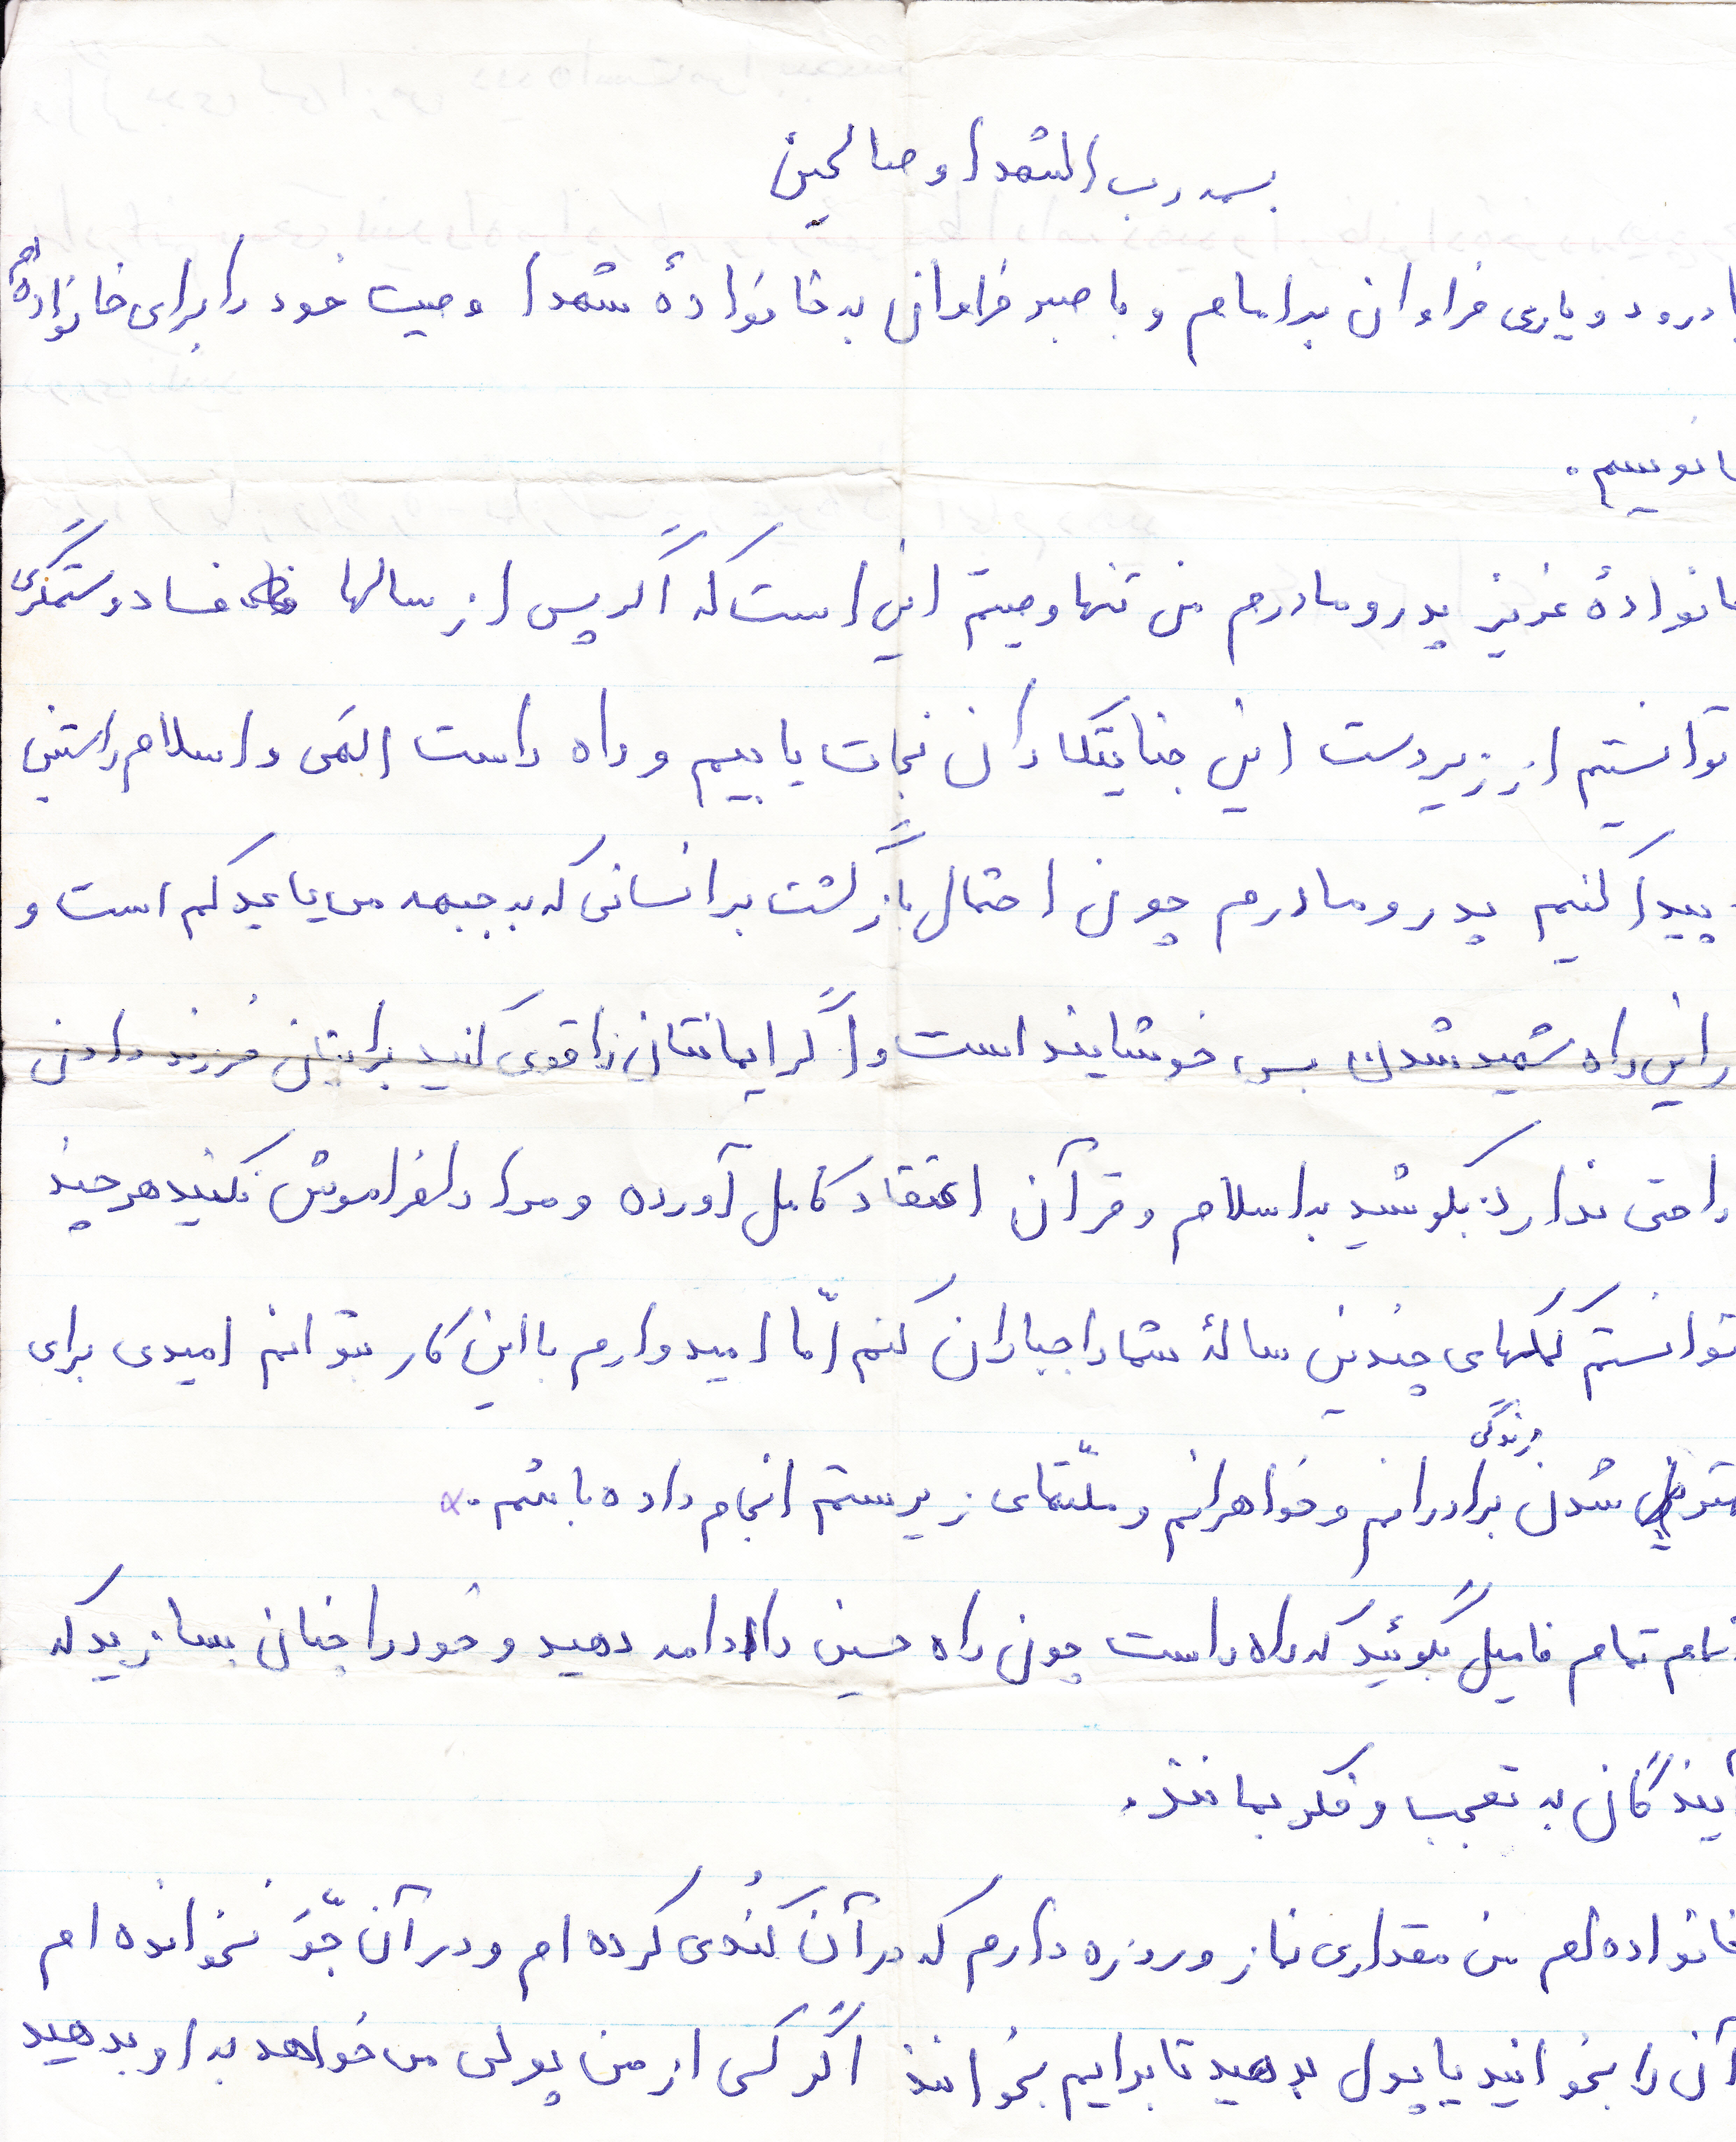 بسمه رب الشهدا و صالحین
با درود و یاری فراوان به امام و با صبر فراوانی به خانوادهٔ شهدا وصیت خود را برای خانواده‌ام
نویسیم.
خانوادهٔ عزیز پدر و مادرم من تنها وصیتم این است که اگر پس از سالها فساد و ستمگری
توانستیم از زیر دست این جنایتکاران نجات یابیم و راه راست الهی و اسلام راستین
پیدا کنیم پدر و مادرم چون احتمال بازگشت بر انسانی که به جبهه می‌یاید کم است و
در این راه شهید شدن بس خوشایند است و اگر ایمانتان را قوی کنید برایتان فرزند دادن
راحتی ندارد بکوشید به اسلام و قرآن اعتقاد کامل آورده و مرا فراموش نکنید هر چند
نتوانستم کمکهای چندین سالهٔ شما را جباران کنم امّا امیدوارم با این کار بتوانم امیدی برای
شدن زندگی برادرانم و خواهرانم و ملّتهای زیر ستم انجام داده باشم.
تمام فامیل بگوئید که راه راست چون راه حسین را ادامه دهید و خود را چنان بسازید که
آیندگان به تعجب و فکر بمانند.
خانواده‌ام من مقداری نماز و روزه دارم که در آن کُندی کرده ام و در آن جّو نخوانده ام
آن را بخوانید یا پول بدهید تا برایم بخوانند اگر کسی از من پولی می خواهد به او بدهید